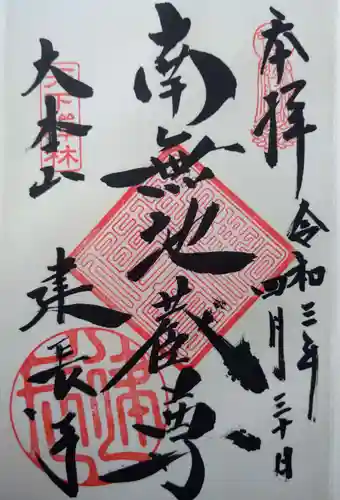 奉拝
令和三年
四月三十日
南無地蔵尊
大本山
天下禅林
建長寺